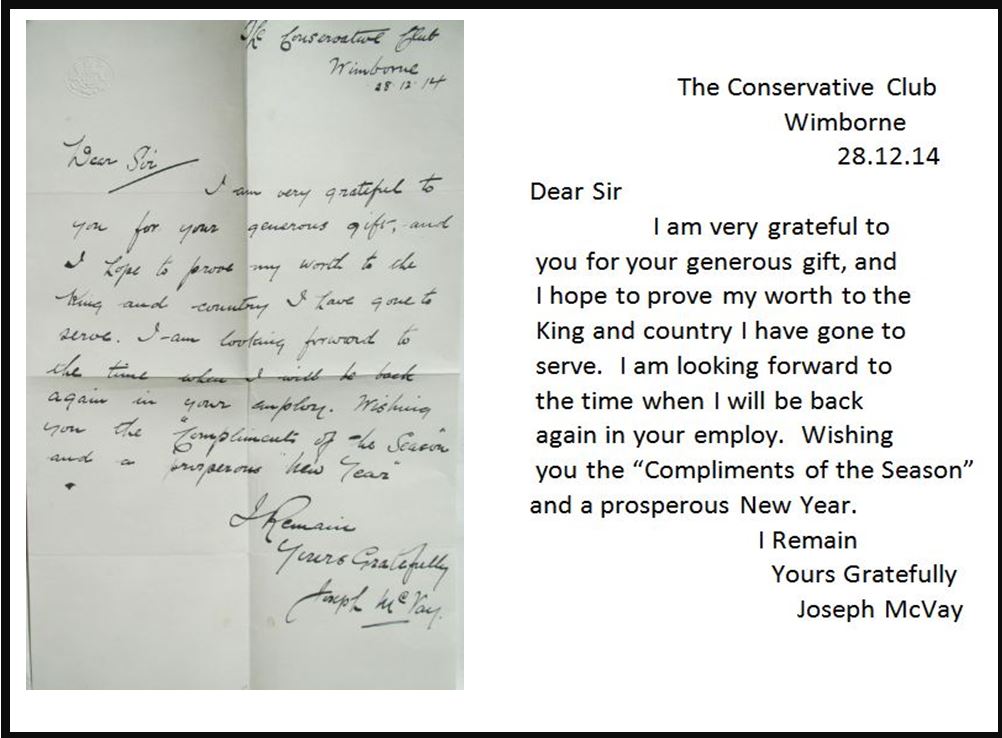 The Conservative Club
Wimborne
28.12.14
Dear Sir
I am very grateful to
you for your generous gift, and
I hope to prove my worth to the
King and country I have gone to
serve. I am looking forward to
the time when I will be back
again in your employ. Wishing
you the "Compliments of the Season"
and a prosperous "New Year"
I Remain
Yours Gratefully
Joseph McVay.
The Conservative Club
Wimborne
28.12.14
Dear Sir
I am very grateful to
you for your generous gift, and
I hope to prove my worth to the
King and country I have gone to
serve. I am looking forward to
the time when I will be back
again in your employ. Wishing
you the “Compliments of the Season”
and a prosperous New Year.
I Remain
Yours Gratefully
Joseph McVay